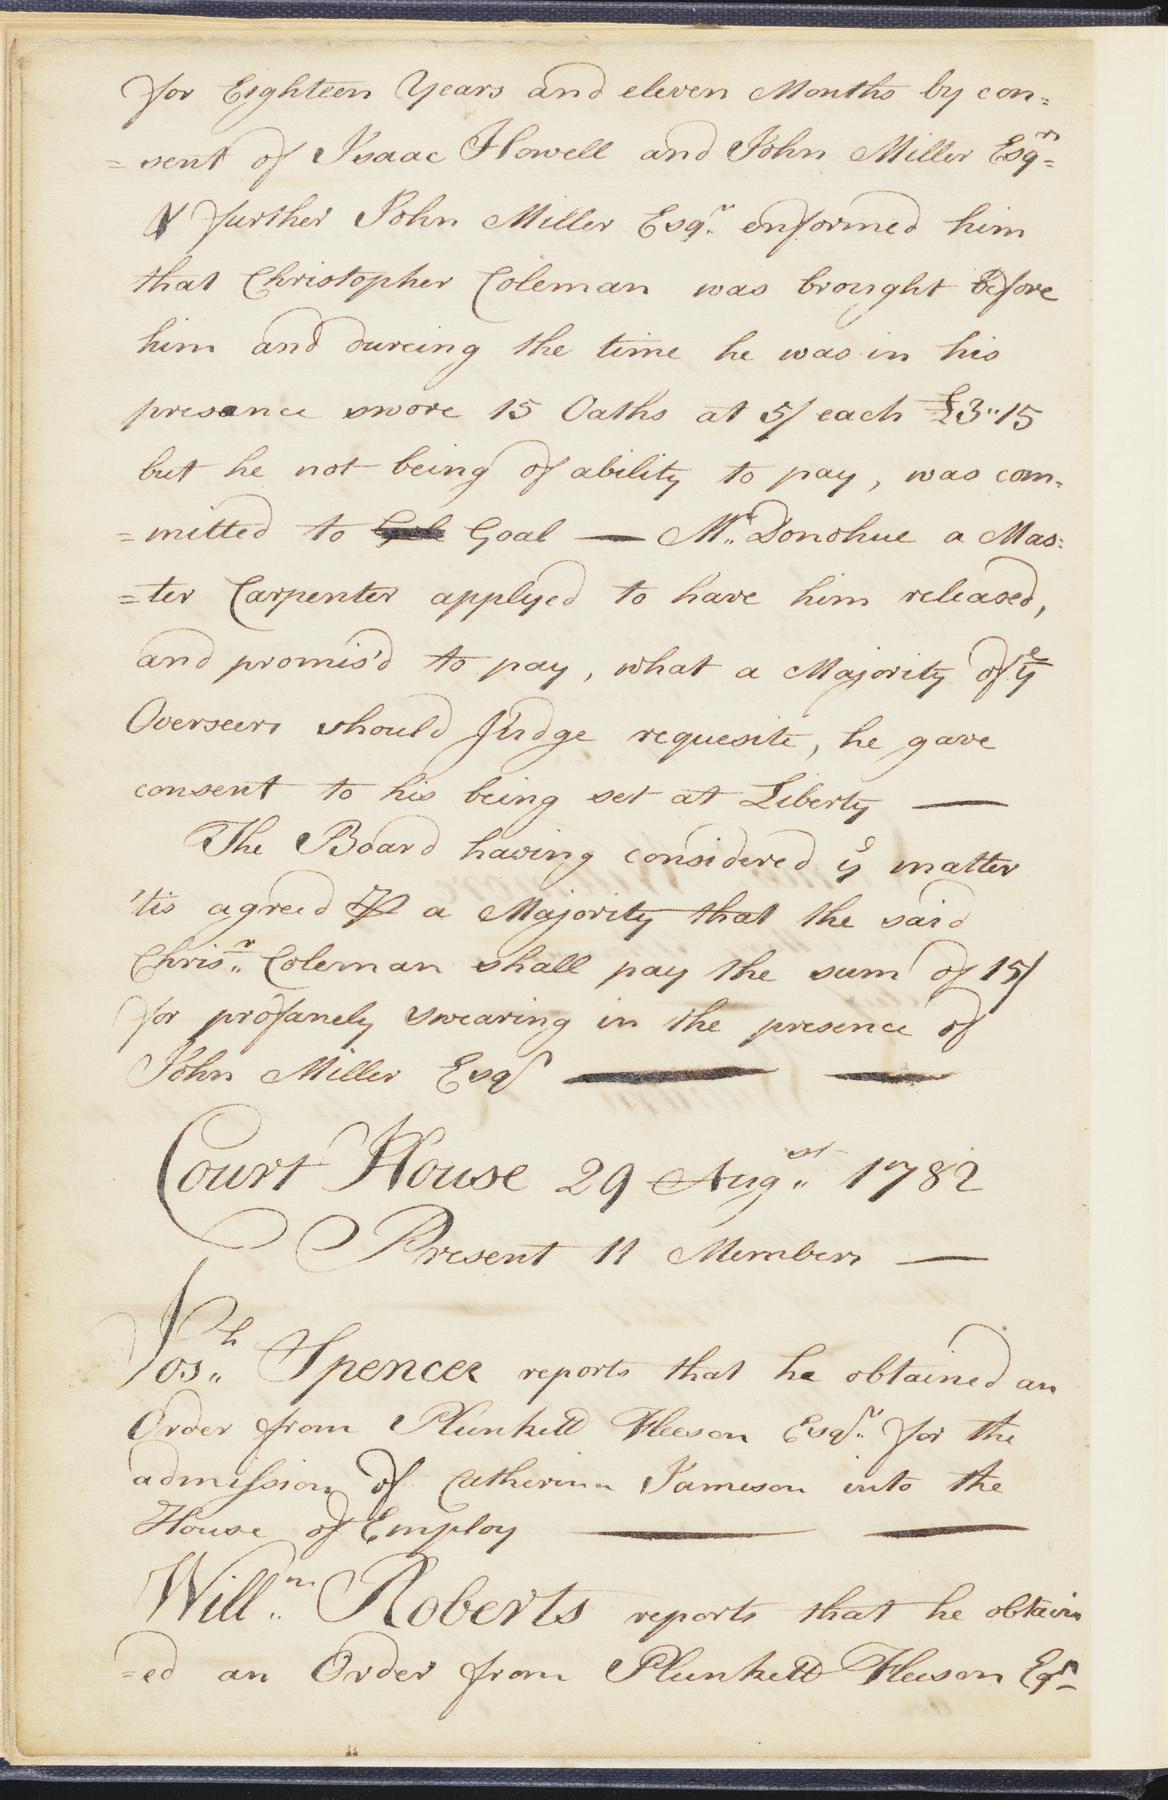 for Eighteen Years and eleven Months by con=
=sent of Isaac Howell and John Miller Esqrs
& further John Miller Esqr. enformed him
that Christopher Coleman was brought before
him and dureing the time he was in his
presance swore 15 Oaths at 5/ each £3"15
but he not being of ability to pay, was com=
=mitted to Goal — Mr. Donohue a Mas=
=ter Carpenter applyed to have him released,
and promis'd to pay, what a Majority of ye
Overseers should Judge requesite, he gave
consent to his being set at Liberty —
The Board having considered ye matter
'tis agreed a Majority that the said
Chrisr. Coleman shall pay the sum of 15/
for profanely swearing in the presence of
John Miller Esqr — —
Court House 29 Augst. 1782
Present 11 Members —
Josh. Spencer reports that he obtained an
Order from Plunkett Fleeson Esqr. for the
admission of Catherina Jameson into the
House of Employ — —
Willm. Roberts reports that he obtain
=ed an Order from Plunkett Fleeson Eqr